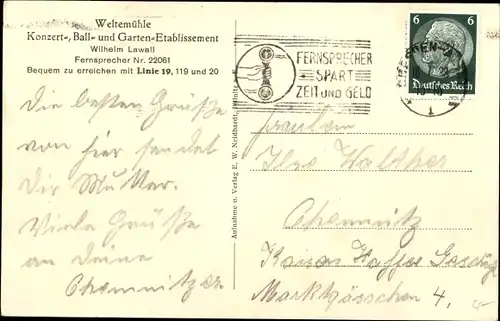 Weltemühle
Konzert-, Ball- und Garten-Etablissement
Wilhelm Lawall
Fernsprecher Nr. 22061
Bequem zu erreichen mit Linie 19, 119 und 20
Die besten Grüße
von hier sendet
Dir Mutter.
Viele Grüße
an deine
Chemnitzer.
Aufnahme u. Verlag E. W. Neidhardt,
FERNSPRECHER
SPART
ZEIT UND GELD
6 6
Deutsches Reich
Fräulein
Ilse Walther
Chemnitz
Kaiser Kaffee Geschäft
Marktgässchen 4.